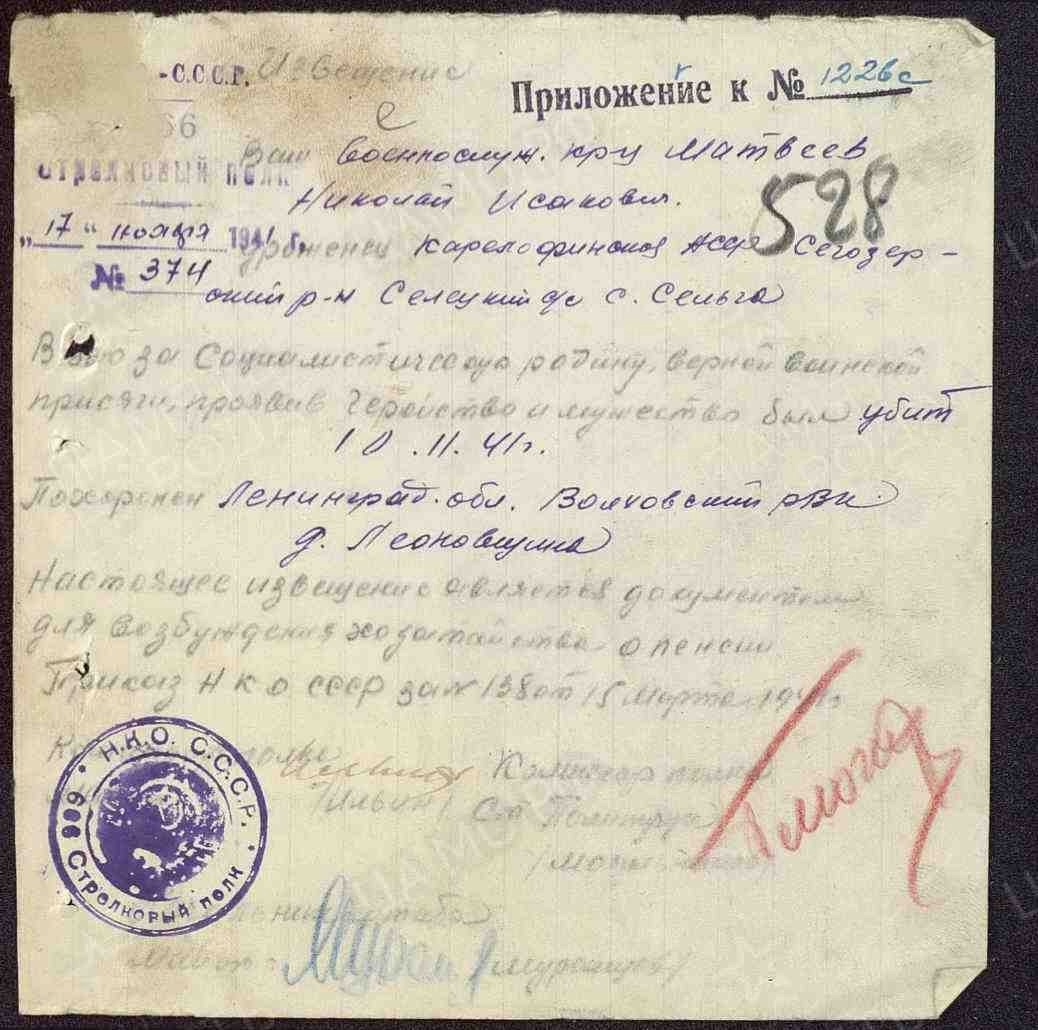 -С.С.С.Р. Извещение
Приложение к № 1226с
66
Стрелковый полк
Ваш военнослуж. кр-ц Матвеев
Николай Исакович.
528
"17" ноября 1941 г.
№ 374
уроженец Карелофинской АССР Сегозер-
ский р-н Селецкий с. Сельга
В бою за Социалистическую родину, верный воинской
присяги, проявив геройство и мужество был убит
10.11.41г.
Похоронен Ленинград. обл. Волховский рвк.
д. Леоновщина
Настоящее извещение является документом
для возбуждения ходатайства о пенсии
Приказ НКО СССР за № 138 от 15 Марта 1941г
Комиссар полка
/Ильин/ Ст. Политрук
Н.К.О. С.С.С.Р.
Стрелковый полк
штаба